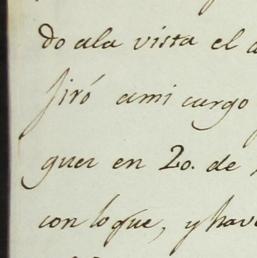 do ala vista el
firó ami cargo
guer en 20. de
con lo que, y hav